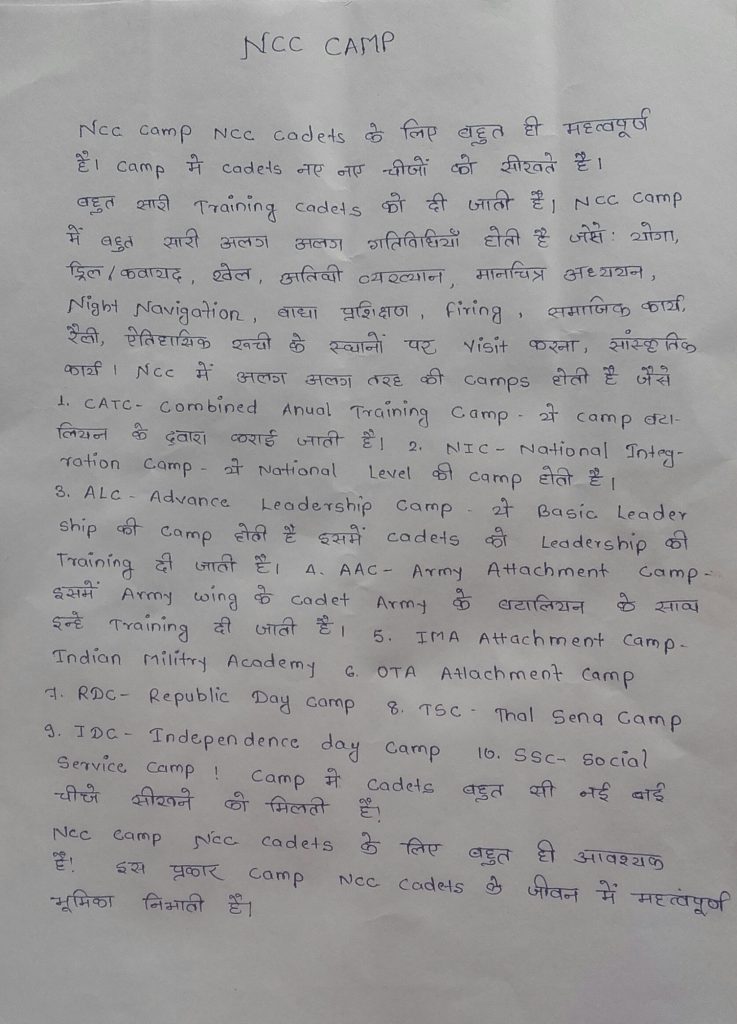 NCC CAMP
NCC Camp NCC Cadets के लिए बहुत ही महत्वपूर्ण
है। Camp मे cadets नए नए चीजों को सीखते है।
बहुत सारी Training cadets को दी जाती है। NCC Camp
में बहुत सारी अलग अलग गतिविधियाँ होती है जैसे: योगा,
ड्रिल / कवायद, खेल, अतिथी व्यख्यान, मानचित्र अध्ययन,
Night Navigation, बाधा प्रशिक्षण, firing, समाजिक कार्य,
रैली, ऐतिहासिक के स्थानों पर visit करना, सांस्कृतिक
कार्य। NCC में अलग अलग तरह की camps होती है जैसे
1. CATC- Combined Anual Training Camp - ये camp बटा-
लियन के द्वारा कराई जाती है। 2. NIC- National Integ-
ration Camp - ये National Level की camp होती है।
3. ALC - Advance Leadership Camp - ये Basic Leader
ship की camp होती है इसमें cadets को Leadership की
Training दी जाती है। 4. AAC- Army Attachment Camp-
इसमें Army wing के cadet Army के बटालियन के साथ
इन्हे Training दी जाती है। 5. IMA Attachment Camp-
Indian Militry Academy 6. OTA Attachment Camp
7. RDC- Republic Day Camp 8. TSC- Thal Sena Camp
9. IDC- Independence day Camp 10. SSC- Social
Service Camp ! Camp मे Cadets बहुत सी नई नई
चीजे सीखने को मिलती है!
NCC Camp NCC Cadets के लिए बहुत ही आवश्यक
है! इस प्रकार Camp NCC Cadets के जीवन में महत्वंपूर्ण
भूमिका निभाती है।